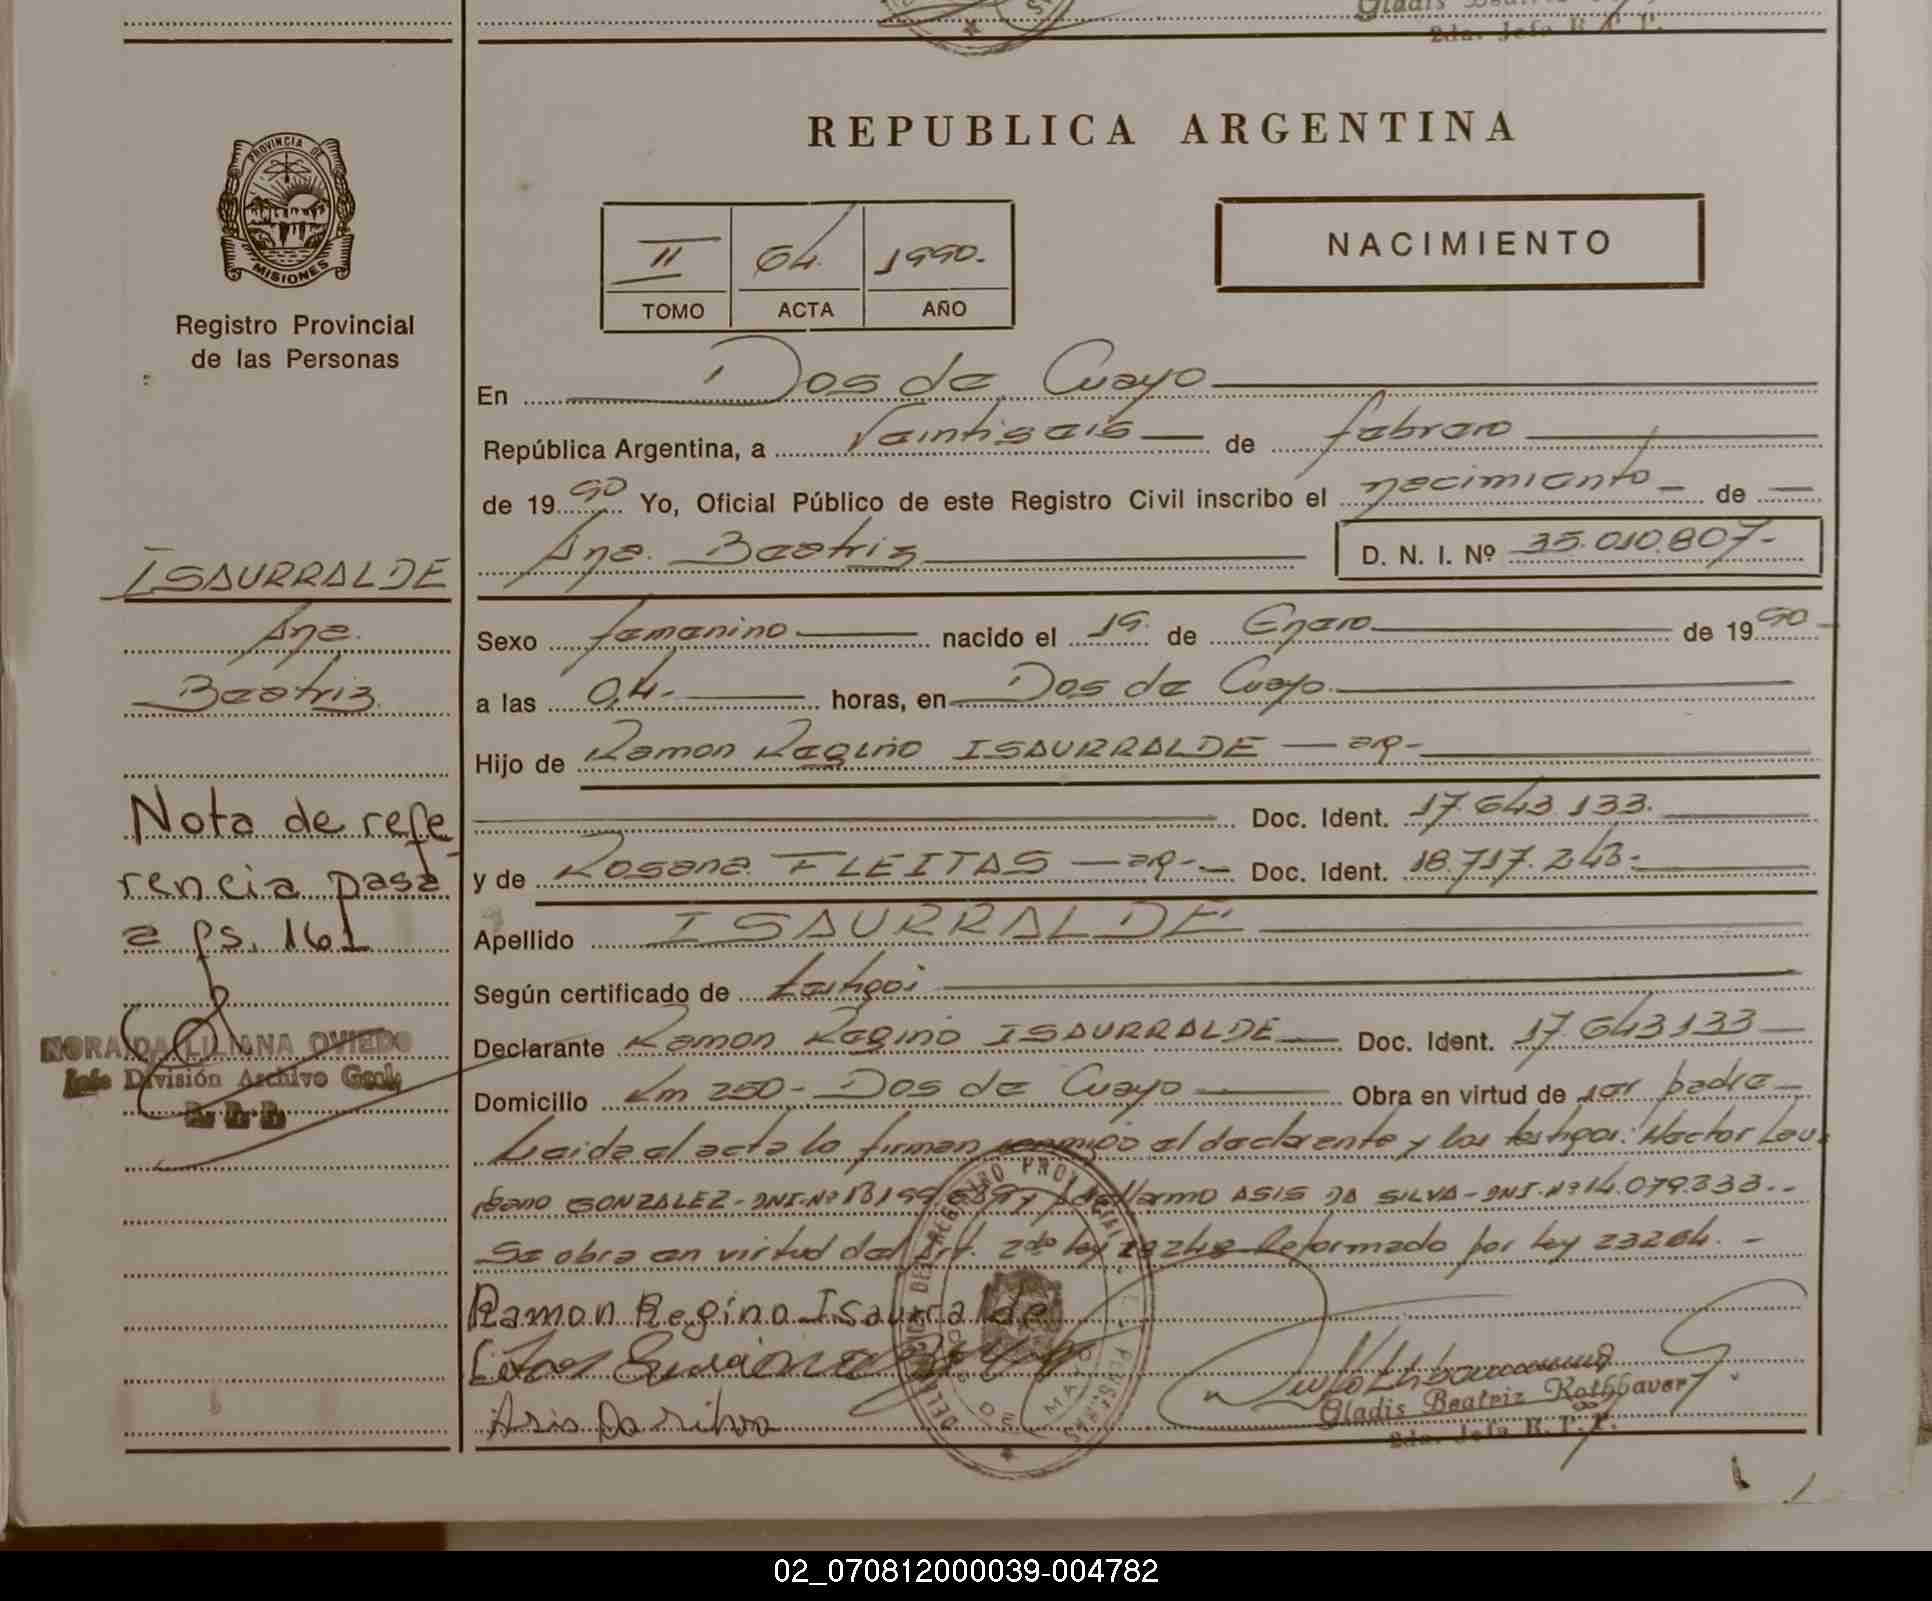 REPUBLICA ARGENTINA
PROVINCIA DE
MISIONES
Registro Provincial
de las Personas
II 64 1990.
TOMO ACTA AÑO
NACIMIENTO
En Dos de Mayo
República Argentina, a Veintiseis de febrero
de 1990 Yo, Oficial Público de este Registro Civil inscribo el nacimiento de
Ana Beatriz D. N. I. Nº 35.010.807-
ISAURRALDE
Ana
Beatriz
Sexo femenino nacido el 19 de Enero de 1990
a las 04 horas, en Dos de Mayo
Hijo de Ramon Regino ISAURRALDE
Doc. Ident. 17.643.133
y de Rosana FLEITAS Doc. Ident. 18.717.243
Apellido ISAURRALDE
Según certificado de testigos
Declarante Ramon Regino ISAURRALDE Doc. Ident. 17.643133
Domicilio Km 250 - Dos de Mayo Obra en virtud de ser padre
Leida el acta lo firman conmigo el declarante y los testigos: Hector
GONZALEZ - DNI-Nº y ASIS DA SILVA - DNI-Nº14.079.333.-
Se obra en virtud del Art. 2do ley 18248 Reformado por ley 23264.-
Ramon Regino Isaurralde
Asis Da Silva
Gladis Beatriz Kothbaver
2da. Jefa R. P. P.
Nota de refe
rencia pasa
a fs. 161
NORAIDA LILIANA OVIEDO
Jefe División Archivo Gral.
R. P. P.
02_070812000039-004782